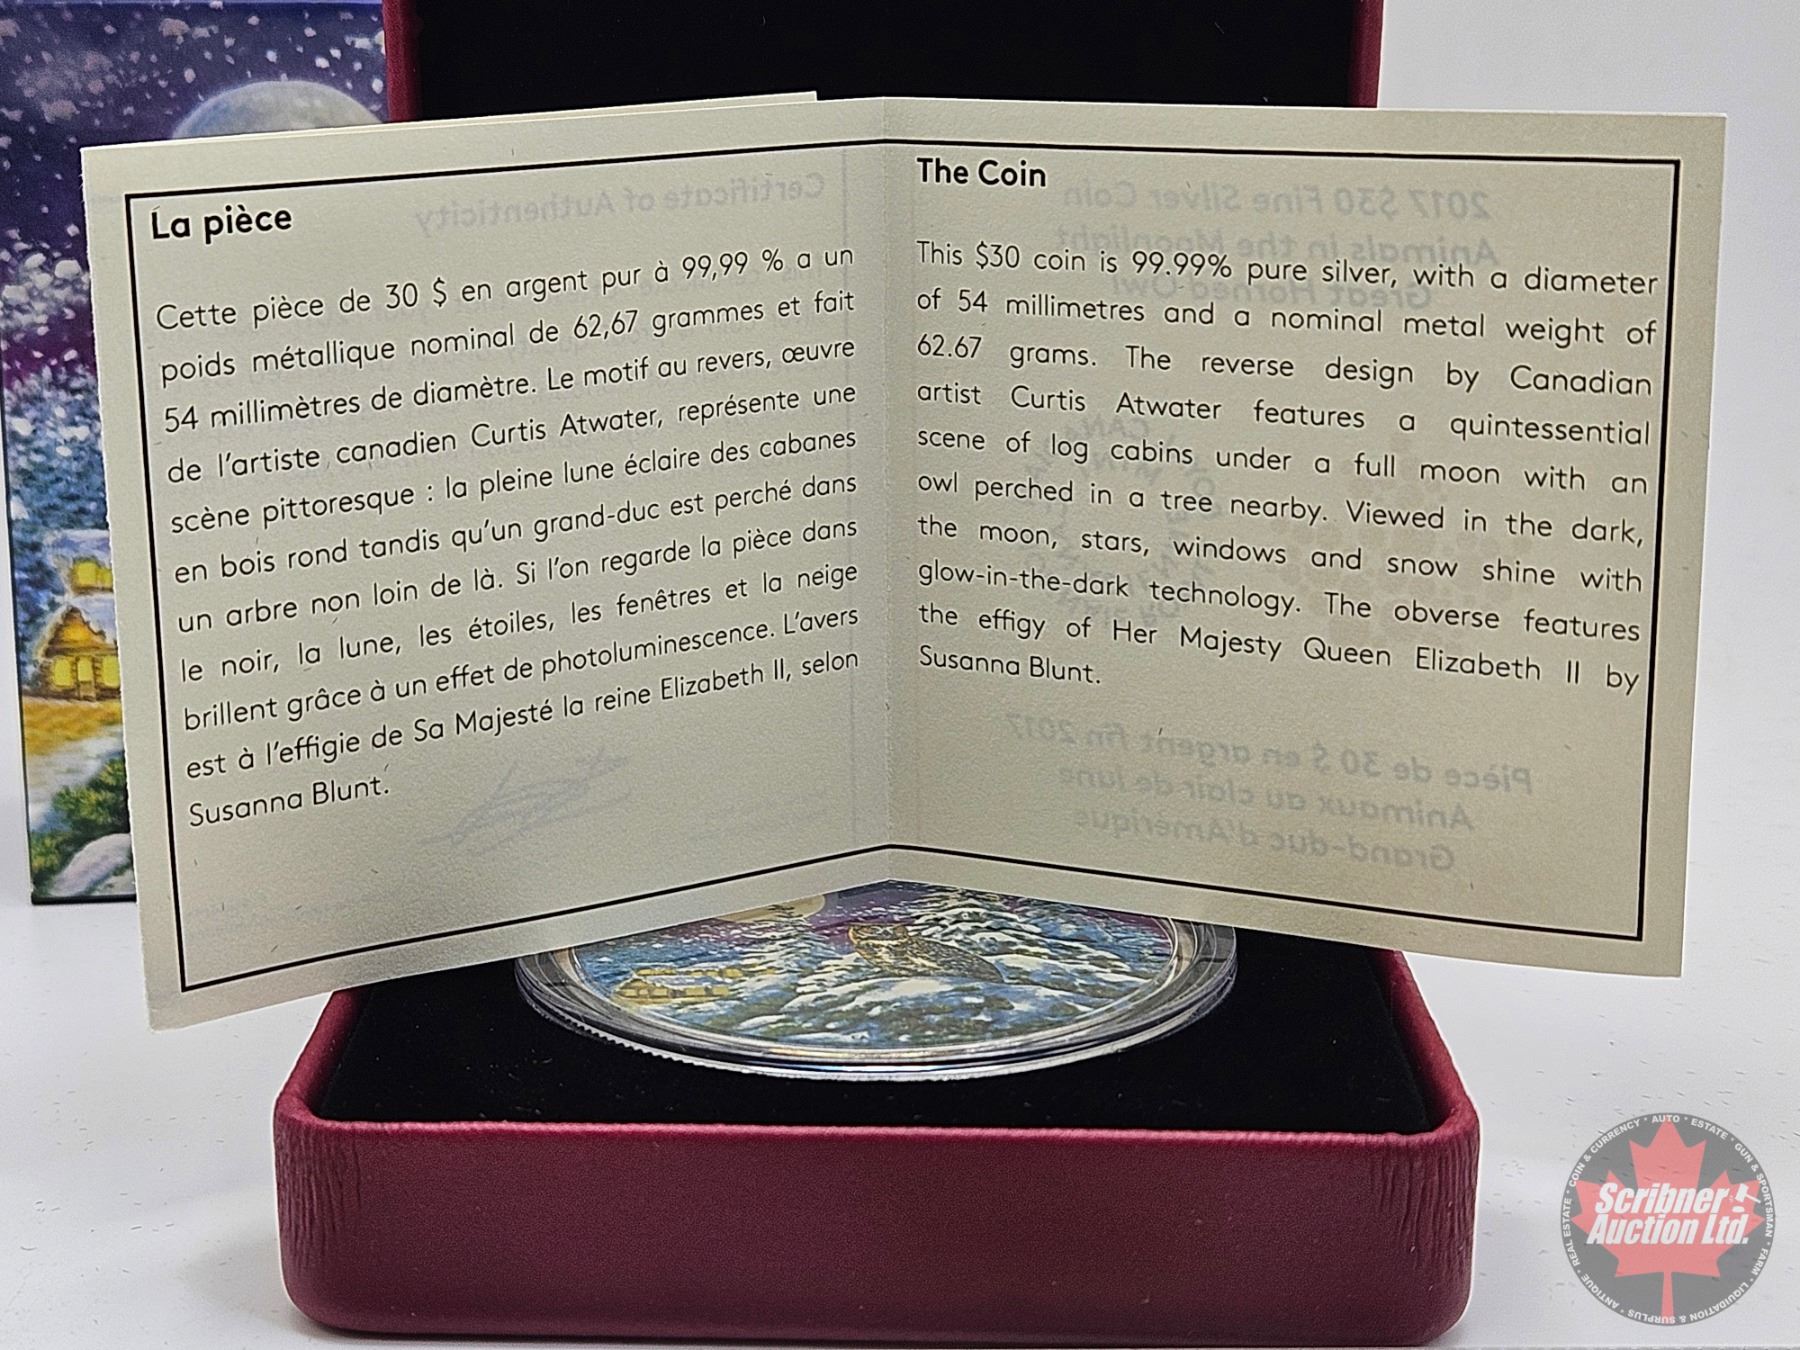 La pièce
Cette pièce de 30 $ en argent pur à 99,99 % a un
poids métallique nominal de 62,67 grammes et fait
54 millimètres de diamètre. Le motif au revers, œuvre
de l'artiste canadien Curtis Atwater, représente une
scène pittoresque : la pleine lune éclaire des cabanes
en bois rond tandis qu'un grand-duc est perché dans
un arbre non loin de là. Si l'on regarde la pièce dans
le noir, la lune, les étoiles, les fenêtres et la neige
brillent grâce à un effet de photoluminescence. L'avers
est à l'effigie de Sa Majesté la reine Elizabeth II, selon
Susanna Blunt.
The Coin
This $30 coin is 99.99% pure silver, with a diameter
of 54 millimetres and a nominal metal weight of
62.67 grams. The reverse design by Canadian
artist Curtis Atwater features a quintessential
scene of log cabins under a full moon with an
owl perched in a tree nearby. Viewed in the dark,
the moon, stars, windows and snow shine with
glow-in-the-dark technology. The obverse features
the effigy of Her Majesty Queen Elizabeth II by
Susanna Blunt.
Certificate of Authenticity
2017 $30 Fine Silver Coin
Animals in the Moonlight
Great Horned Owl
Pièce de 30 $ en argent fin 2017
Animaux au clair de lune
Grand-duc d'Amérique
Scribner
Auction Ltd.
COIN & CURRENCY • AUTO • ESTATE • GUN & SPORTSMAN • FARM • LIQUIDATION & SURPLUS • ANTIQUE • REAL ESTATE